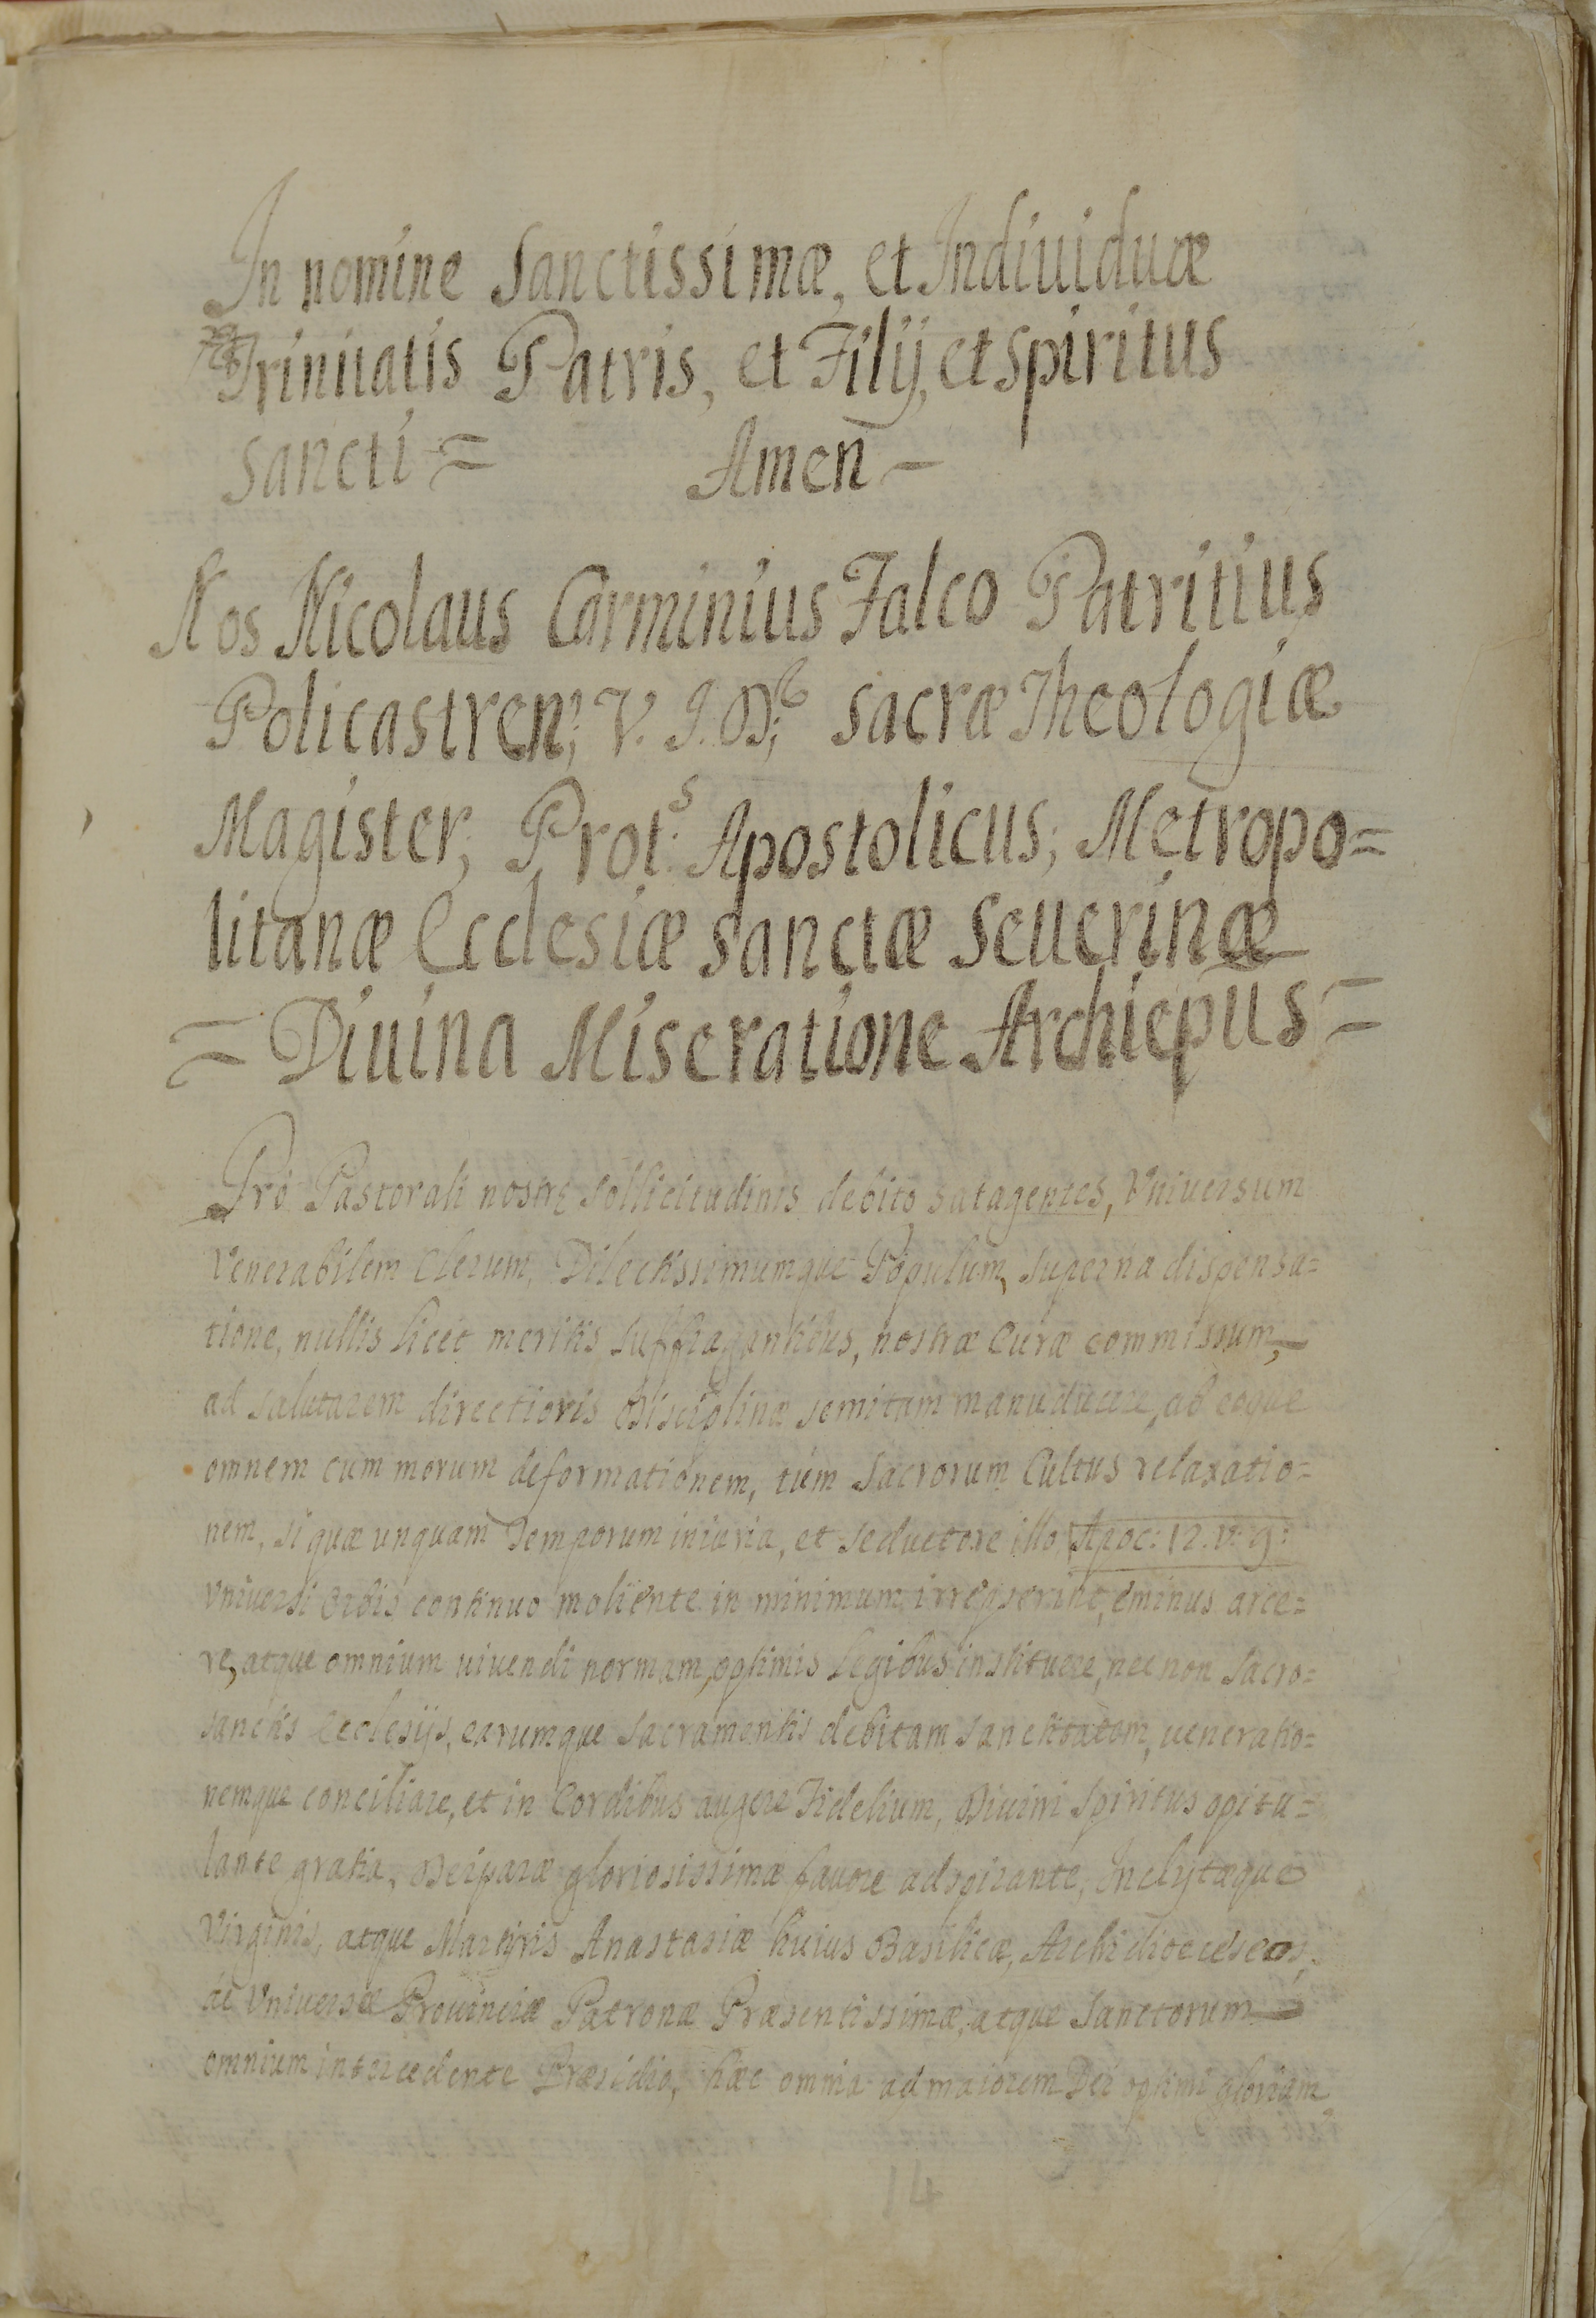 In nomine Sanctissimæ, et Indiuiduæ
Trinitatis Patris, et Filij, et Spiritus
Sancti = Amen -
Nos Nicolaus Carminius Falco Patritius
Policastren; V. J. D; Sacræ Theologiæ
Magister, Prot.s Apostolicus; Metropo=
litanæ Ecclesiæ Sanctæ Seuerinæ
= Diuina Miseratione Archiepũs =
Pro Pastorali nostrę sollicitudinis debito satagentes, Vniuersum
Venerabilem Clerum, Dilectissimumque Populum, superna dispensa=
tione, nullis licet meritis suffragantibus, nostræ Curæ commissum,
ad salutarem directioris Disciplinæ semitam manuducere, ab eoque
omnem cum morum deformationem, tùm Sacrorum Cultus relaxatio=
nem, si quæ unquam Temporum iniuria, et seductore illo Apoc: 12. v: 9:
vniuersi Orbis continuo moliente in minimum irrepserint, eminus arce=
re, atque omnium uiuendi normam, optimis Legibus instituere, nec non Sacro=
sanctis Ecclesijs, earumque Sacramentis debitam sanctitatem, ueneratio=
nemque conciliare, et in Cordibus augere Fidelium, Diuini Spiritus opitu=
lante gratia, Deiparæ gloriosissimæ fauore adspirante, Inclytæque
Virginis, atque Martyris Anastasiæ huius Basilicæ, Archidioeceseos,
ac Vniuersæ Prouinciæ Patronæ Præsentissimæ, atque Sanctorum
omnium intercedente Præsidio, hæc omnia ad maiorem Dei optimi gloriam
14